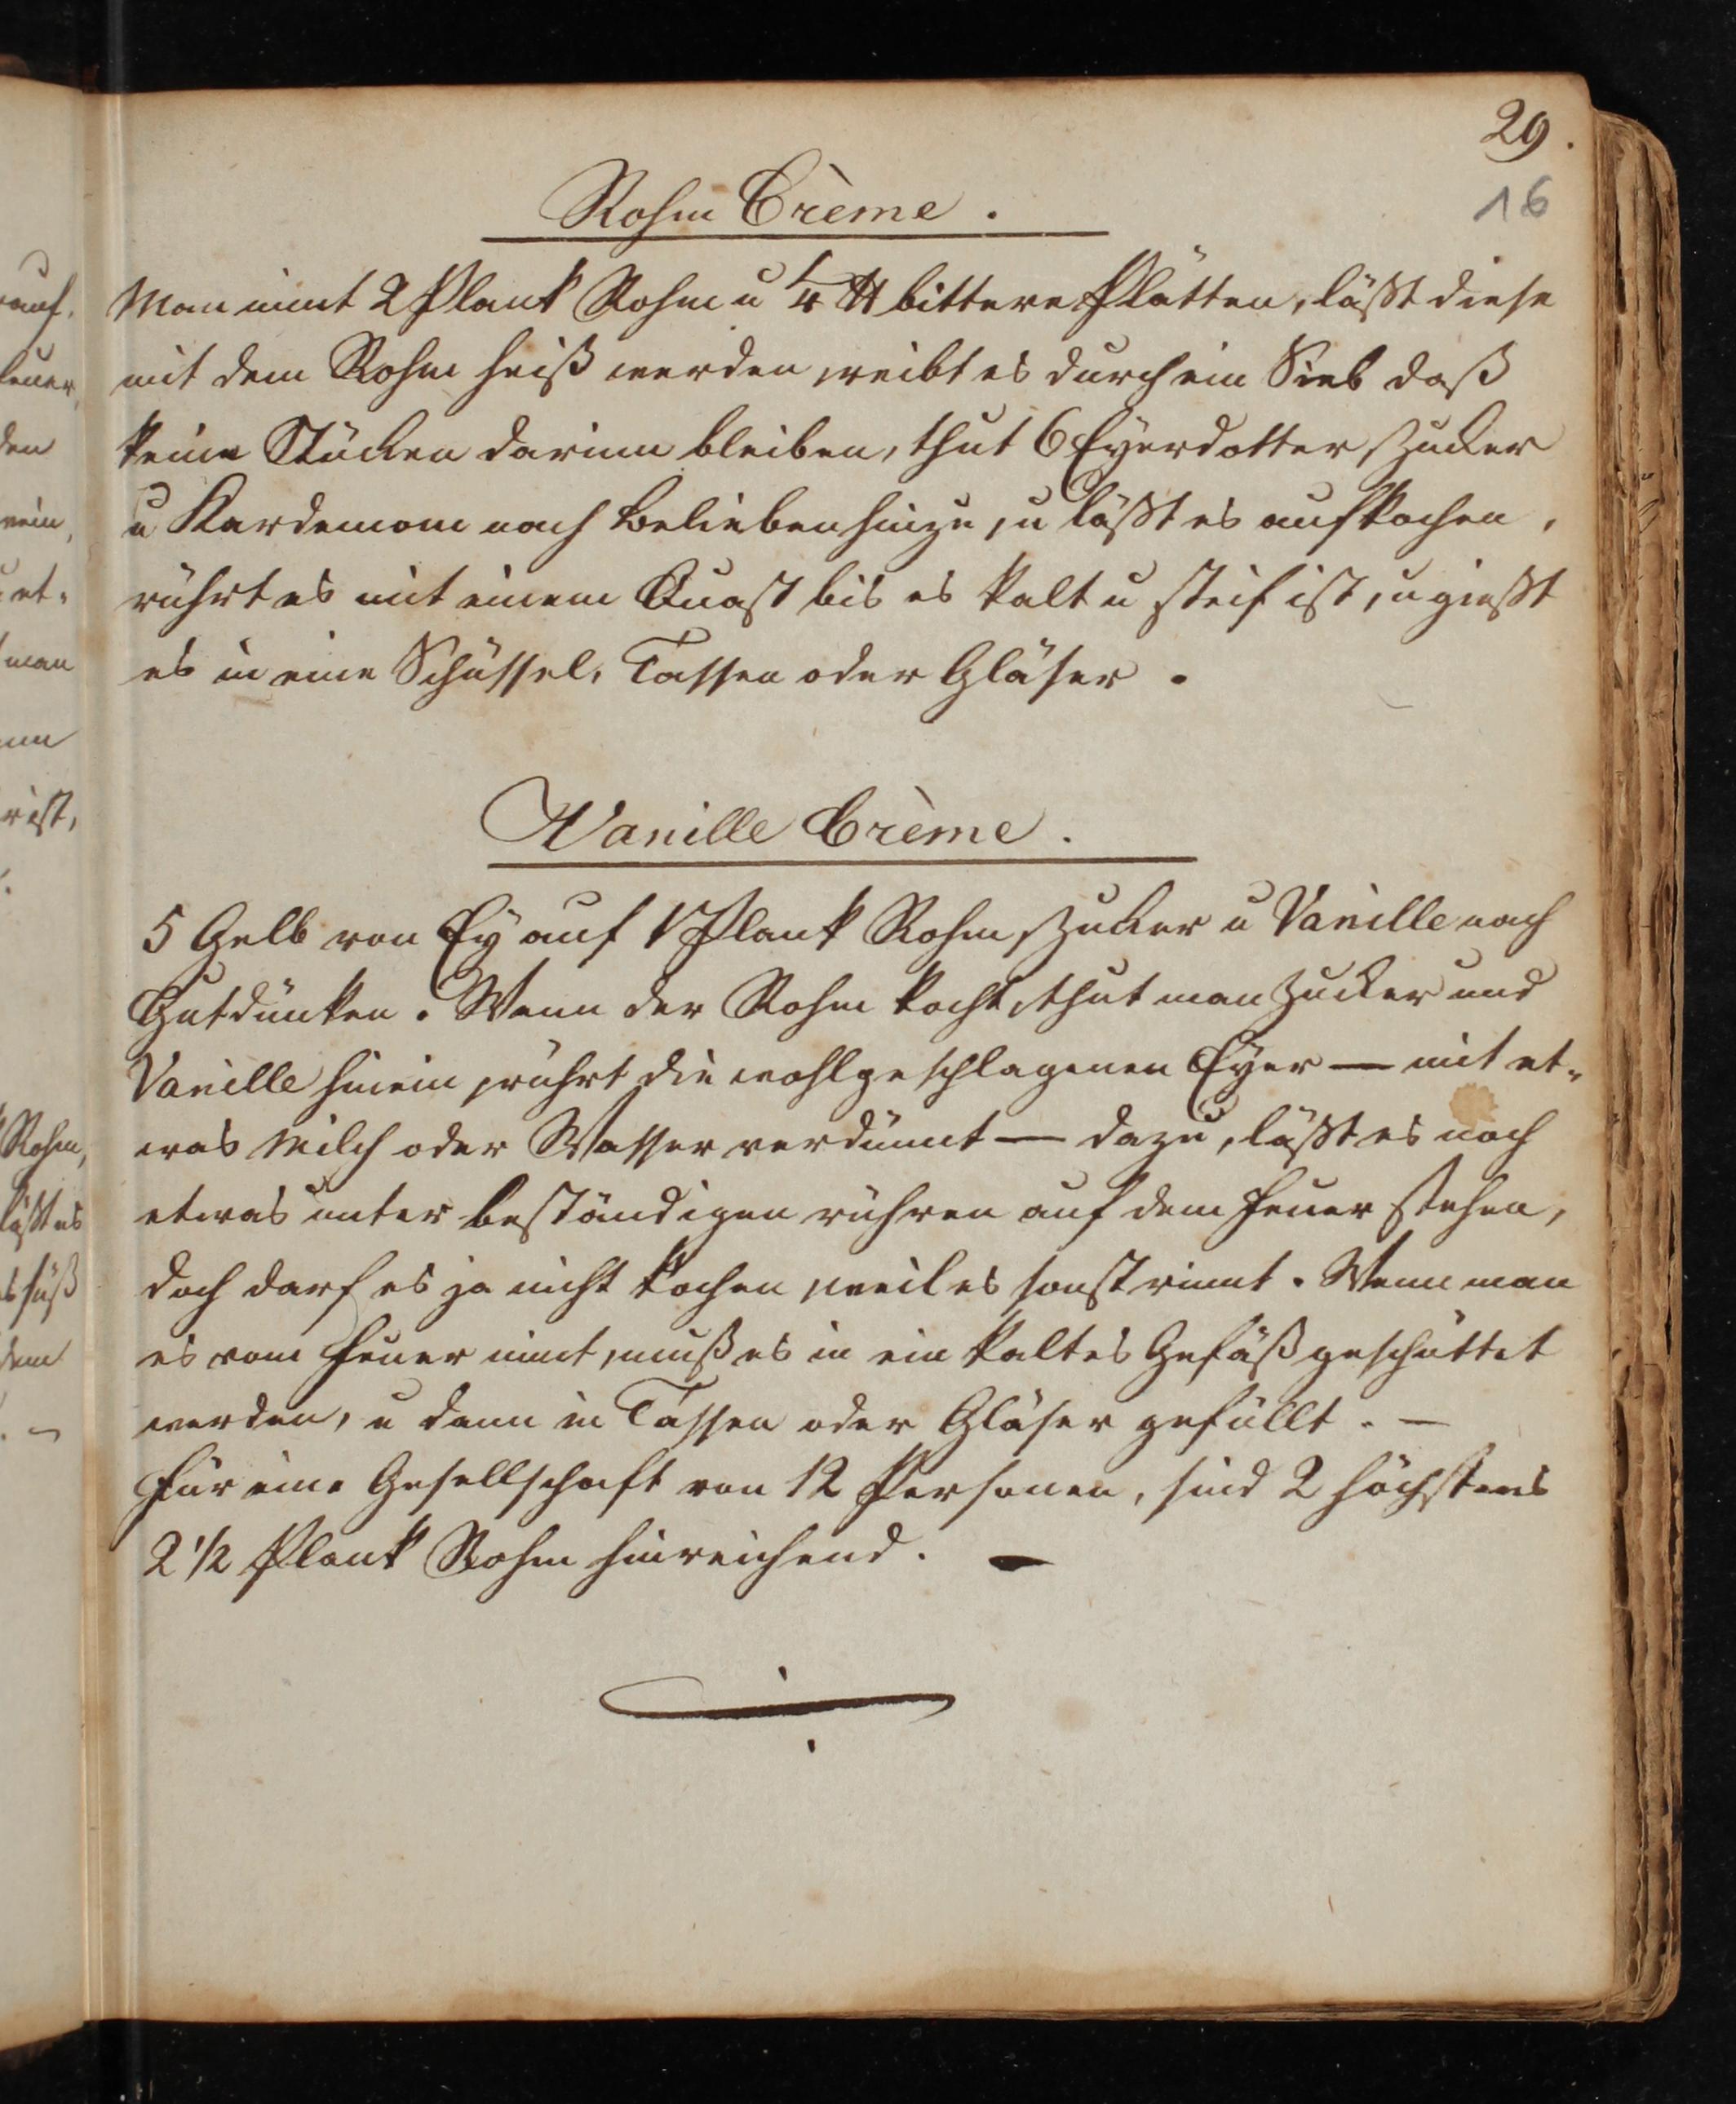 29.
16
Rohm Crème.
Man nimt 2 Plank Rohm u ¼ ℔ bittere Plätten, läßt diese
mit dem Rohm heiß werden, reibt es durch ein Sieb daß
keine Stücken darinn bleiben, thut 6 Eyerdotter, Zucker
u Kardemom nach Belieben hinzu, u läßt es aufkochen,
rührt es mit einem Quast bis es kalt u steif ist, u gießt
es in eine Schüssel, Tassen oder Gläser.
Vanille Crème.
5 Gelb von Ey auf 1 Plank Rohm, Zucker u Vanille nach
Gutdünken. Wenn der Rohm kocht, thut man Zucker und
Vanille hinein, rührt die wohlgeschlagenen Eyer — mit et-
was Milch oder Wasser verdünnt — dazu, läßt es noch
etwas unter beständigen rühren auf dem Feuer stehen,
doch darf es ja nicht kochen, weil es sonst rinnt. Wenn man
es vom Feuer nimt, muß es in ein kaltes Gefäß geschüttet
werden, u dann in Tassen oder Gläser gefüllt. —
Für eine Gesellschaft von 12 Personen, sind 2 höchstens
2 1/2 Plank Rohm hinreichend. —
auf.
den
rein,
et-
man
rist,
Rohm,
läßt es
süß
dem